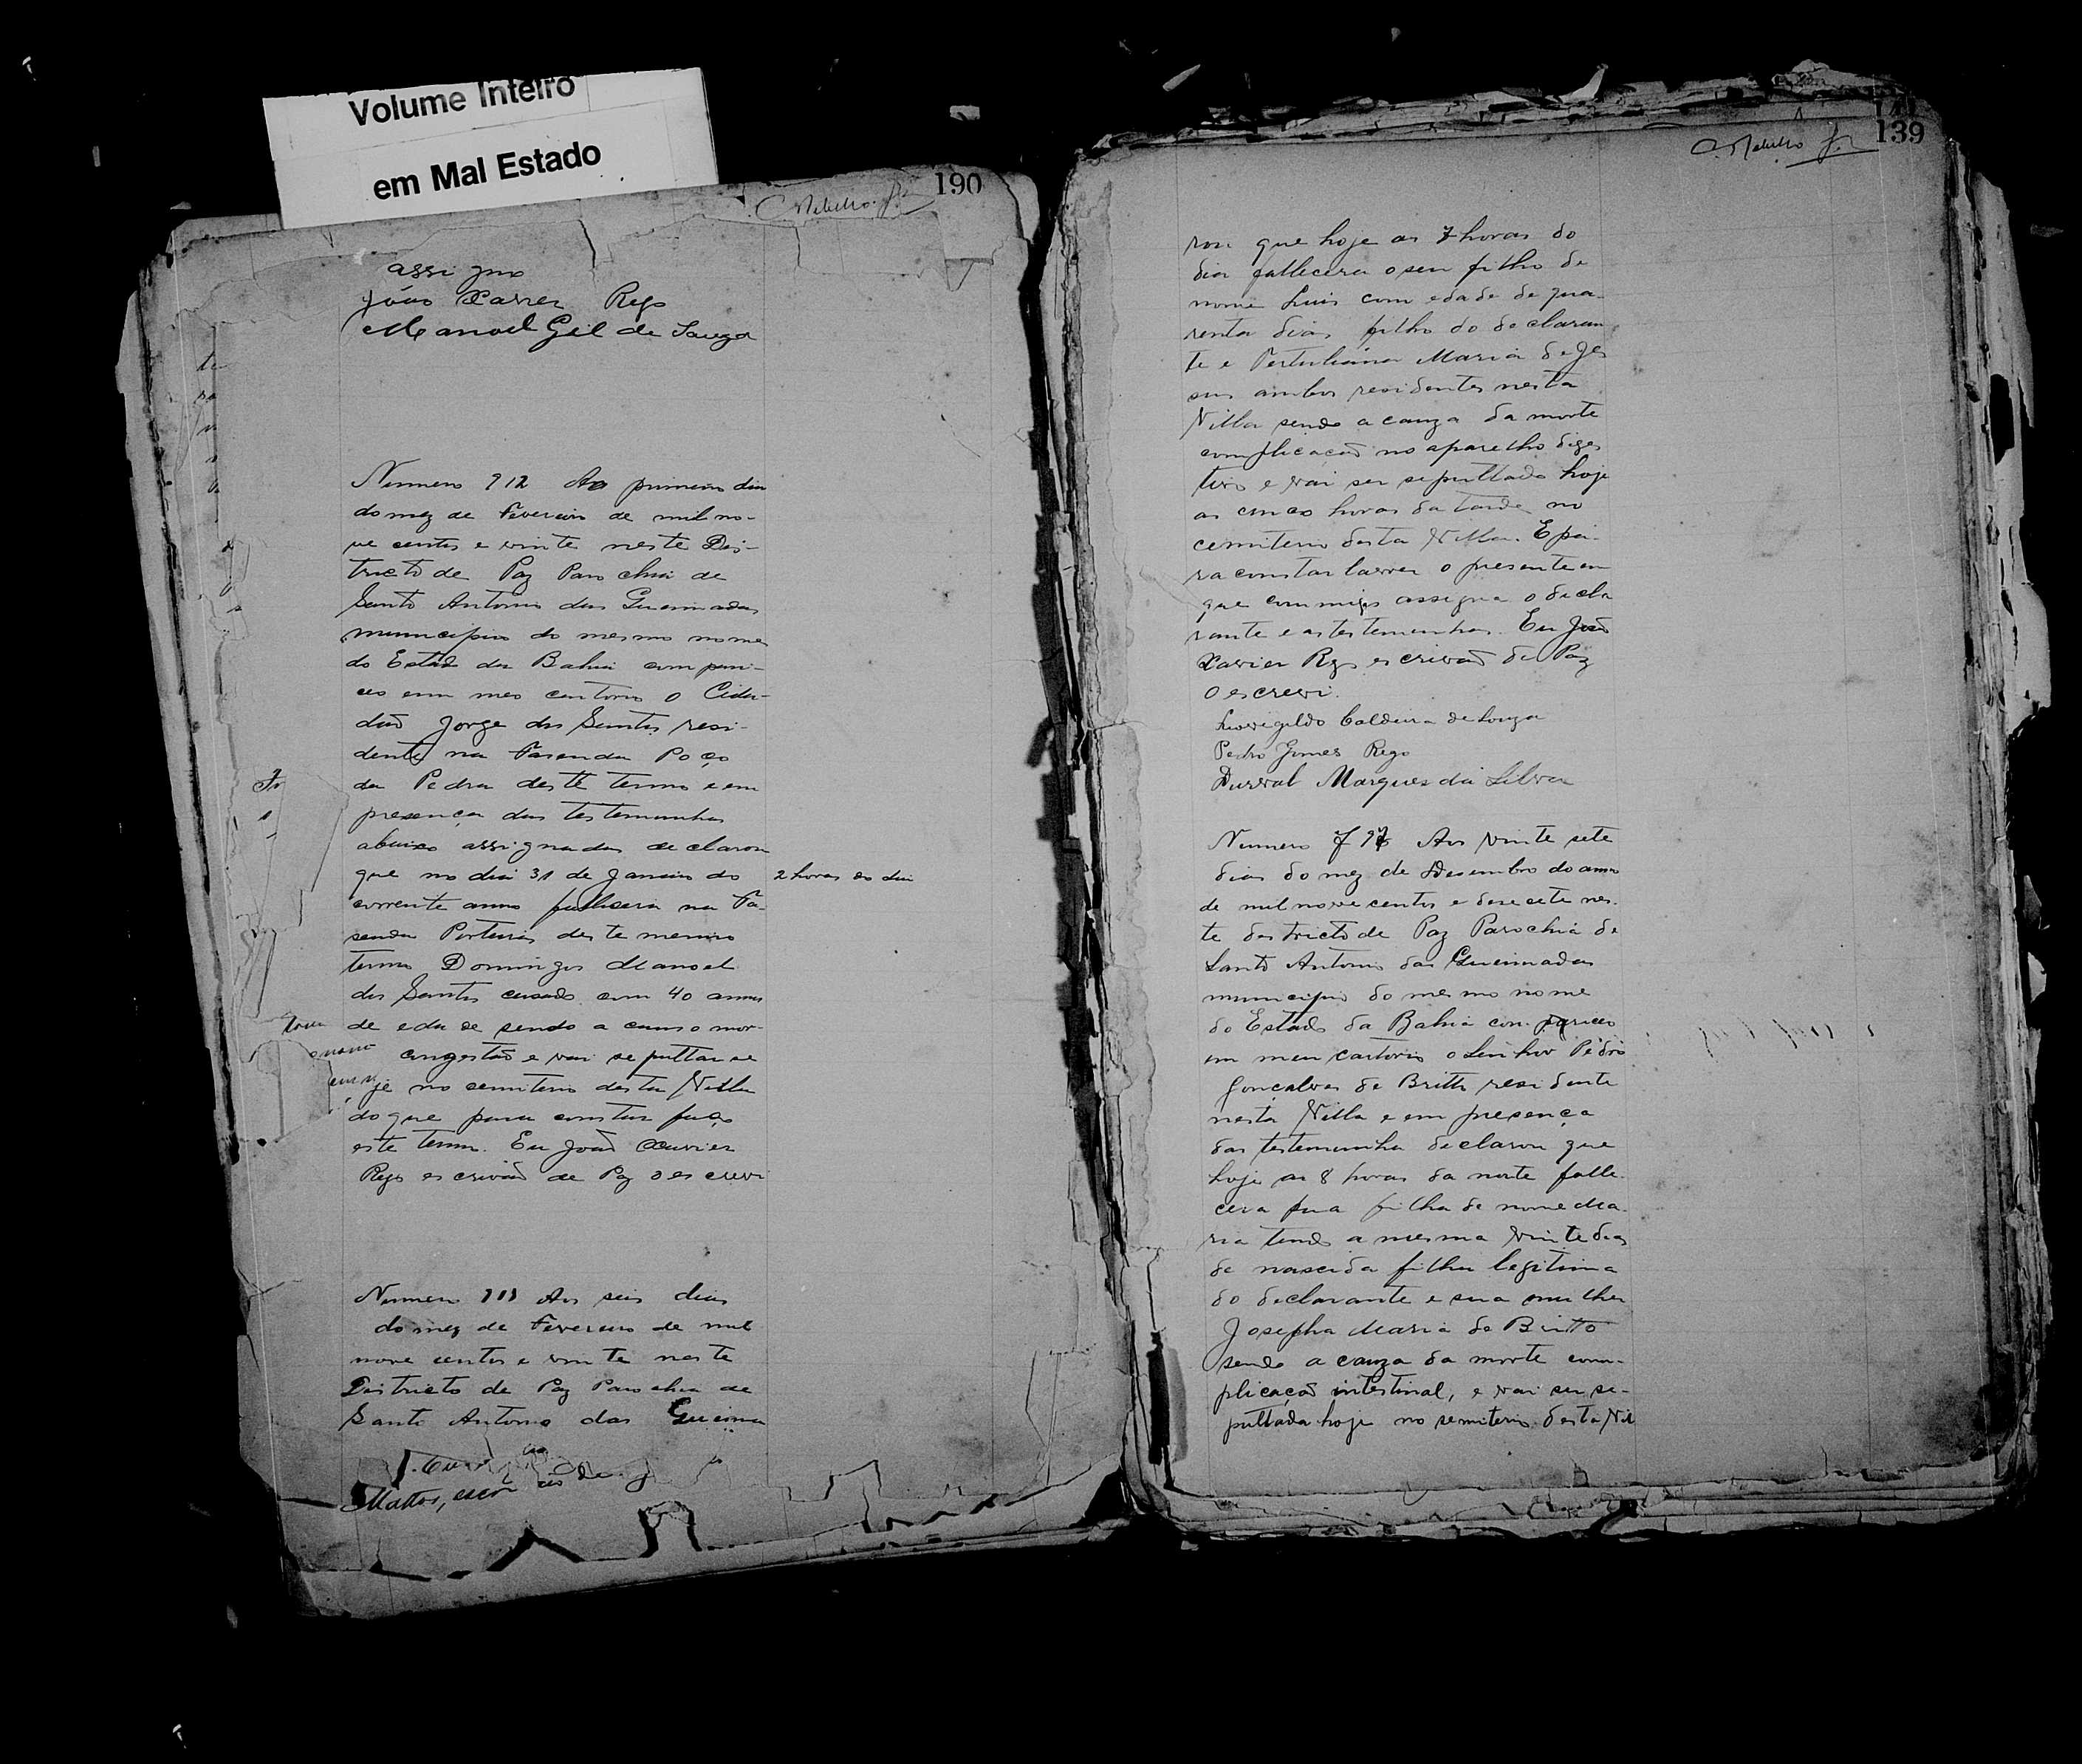 Volume Inteiro
em Mal Estado
190
assigno
João Xavier Rego
Manoel Gil de Souza
Numero 912 Ao primeiro dia
do mez de Fevereiro de mil no-
ve centos e vinte neste Dis-
tricto de Paz Parochia de
Santo Antonio das Queimadas
municipio do mesmo nome
do Estado da Bahia compare-
ceo em meo cartorio o Cida-
dão Jorge dos Santos resi-
dente na Fasenda Poço
da Pedra deste termo e em
presença das testemunhas
abaixo assignadas declarou
que no dia 31 de Janeiro do
2 horas do dia
corrente anno fallecera na Fa-
senda Porteiras deste mesmo
termo Domingos Manoel
dos Santos casado com 40 annos
de edade sendo a causa mor-
congestão e vai sepultar se
je no cemiterio desta Villa
do que para constar faço
este termo. Eu João Xavier
Rego escrivão de Paz o escrevi
Numero 913 Aos seis dias
do mez de Fevereiro de mil
nove centos e vinte neste
Districto de Paz Parochia de
Santo Antonio das Queima
Mattos,
139
rou que hoje as 7 horas do
dia fallecera o seu filho de
nome Luis com edade de qua-
renta dias, filho do declaran-
te e Tertuliana Maria de Je
sus ambos residentes nesta
Villa sendo a cauza da morte
complicação no aparelho diges
tivo e vai ser sepultado hoje
as cinco horas da tarde no
cemiterio desta Villa. E pa-
ra constar lavrei o presente em
que commigo assigna o decla
rante e as testemunhas. Eu João
Xavier Rego escrivão de Paz
o escrevi.
Leovegildo Caldeira de Souza
Pedro Gomes Rego
Durval Marques da Silva
Numero 797 Aos vinte sete
dias do mez de Desembro do anno
de mil nove centos e desecete nes-
te destricto de Paz Parochia de
Santo Antonio das Queimadas
municipio do mesmo nome
do Estado da Bahia compareceo
em meu cartorio o Senhor Pedro
Gonçalves de Britto residente
nesta Villa e em presença
das testemunha declarou que
hoje as 8 horas da noite falle-
cera sua filha de nome Ma-
ria tendo a mesma vinte dias
de nascida filha legitima
do declarante e sua mulher
Josepha Maria de Britto
sendo a cauza da morte com-
plicação intestinal, e vai ser se-
pultada hoje no semiterio desta Vil